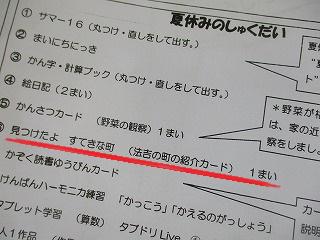 夏休みのしゅくだい
① サマー16（丸つけ・直しをして出す。）
② まいにちにっき
③ かん字・計算ブック（丸つけ・直しをして出す。）
④ 絵日記（2まい）
⑤ かんさつカード （野菜の観察）1まい
見つけたよ すてきな町 （法吉の町の紹介カード） 1まい
かぞく読書ゆうびんカード
けんばんハーモニカ練習 「かっこう」「かえるのがっしょう」
タブレット学習 （算数） タブドリLive
人1作品
夏
＊野菜が
は、家の近
察をしまし
カー
説明